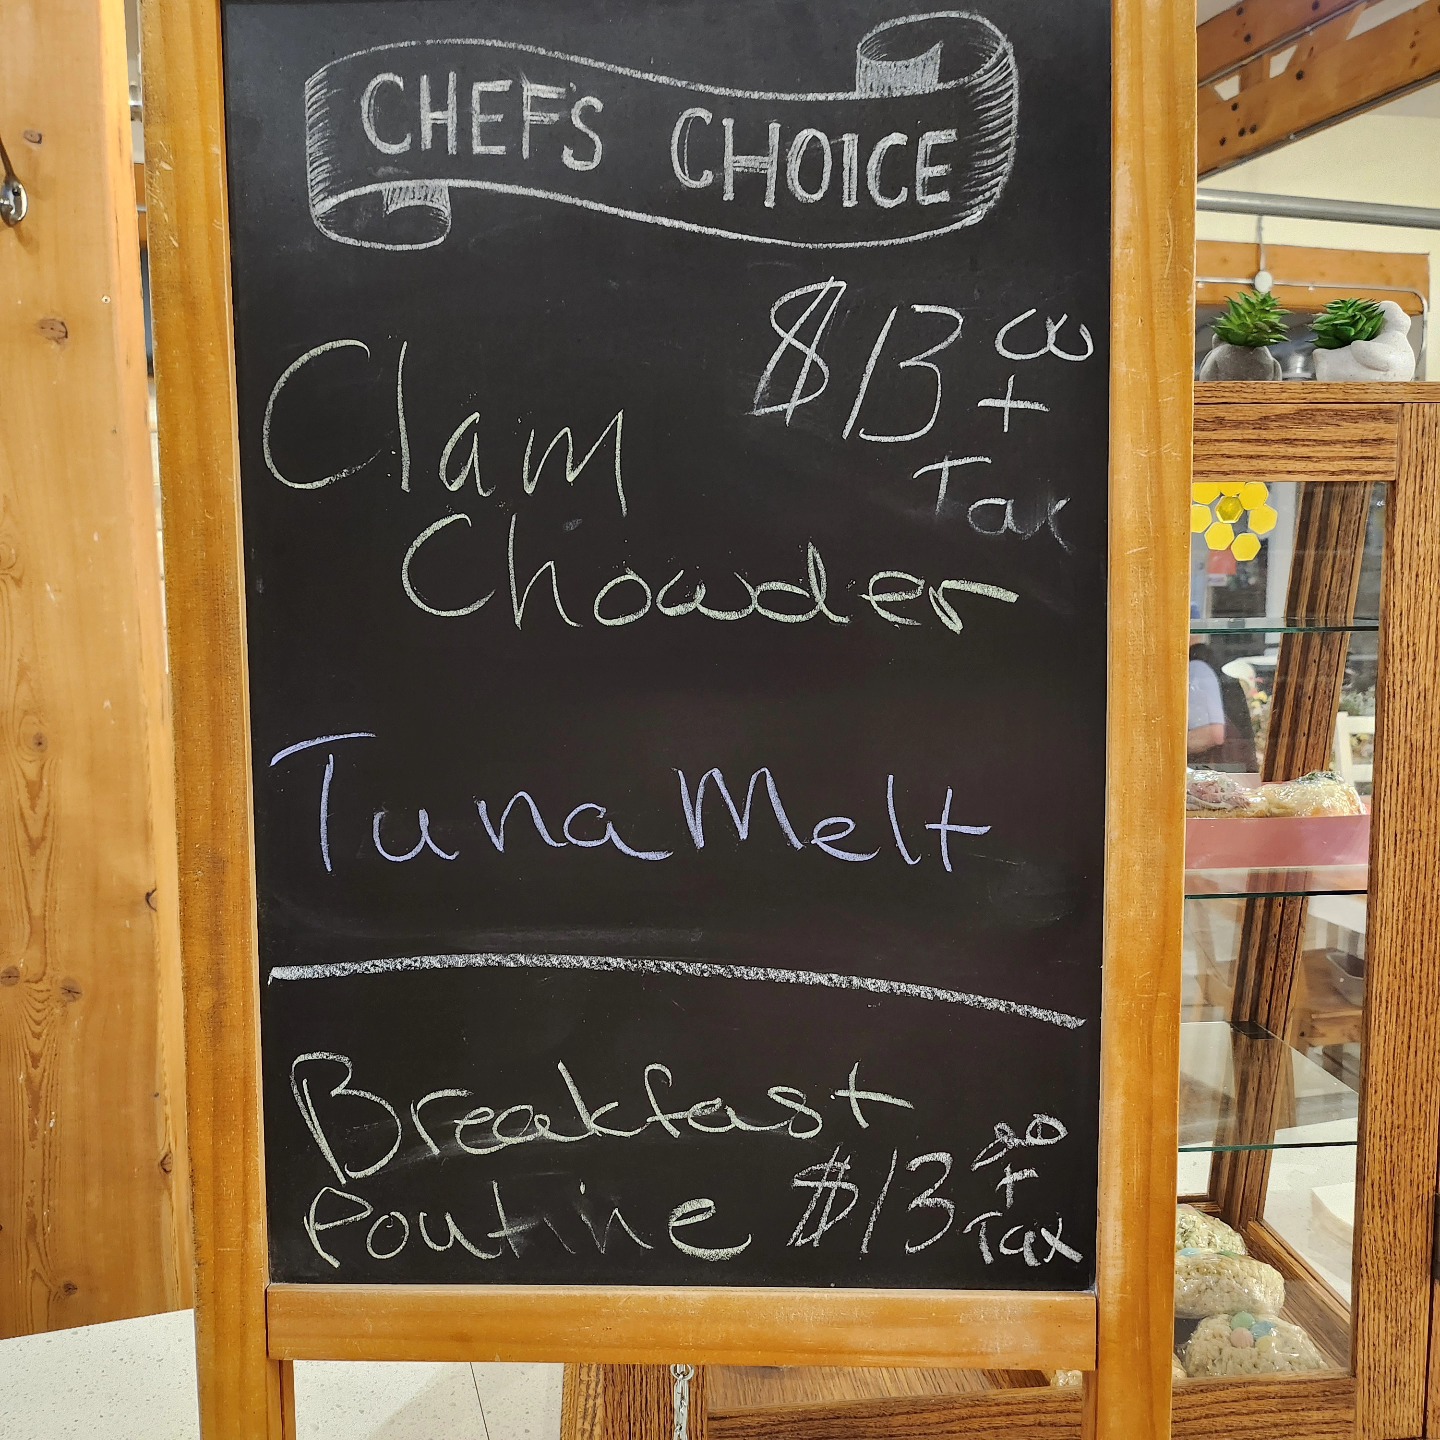 CHEFS CHOICE
$13 00
+
Tax
Clam
Chowder
Tuna Melt
Breakfast
Poutine $13 00
+
Tax